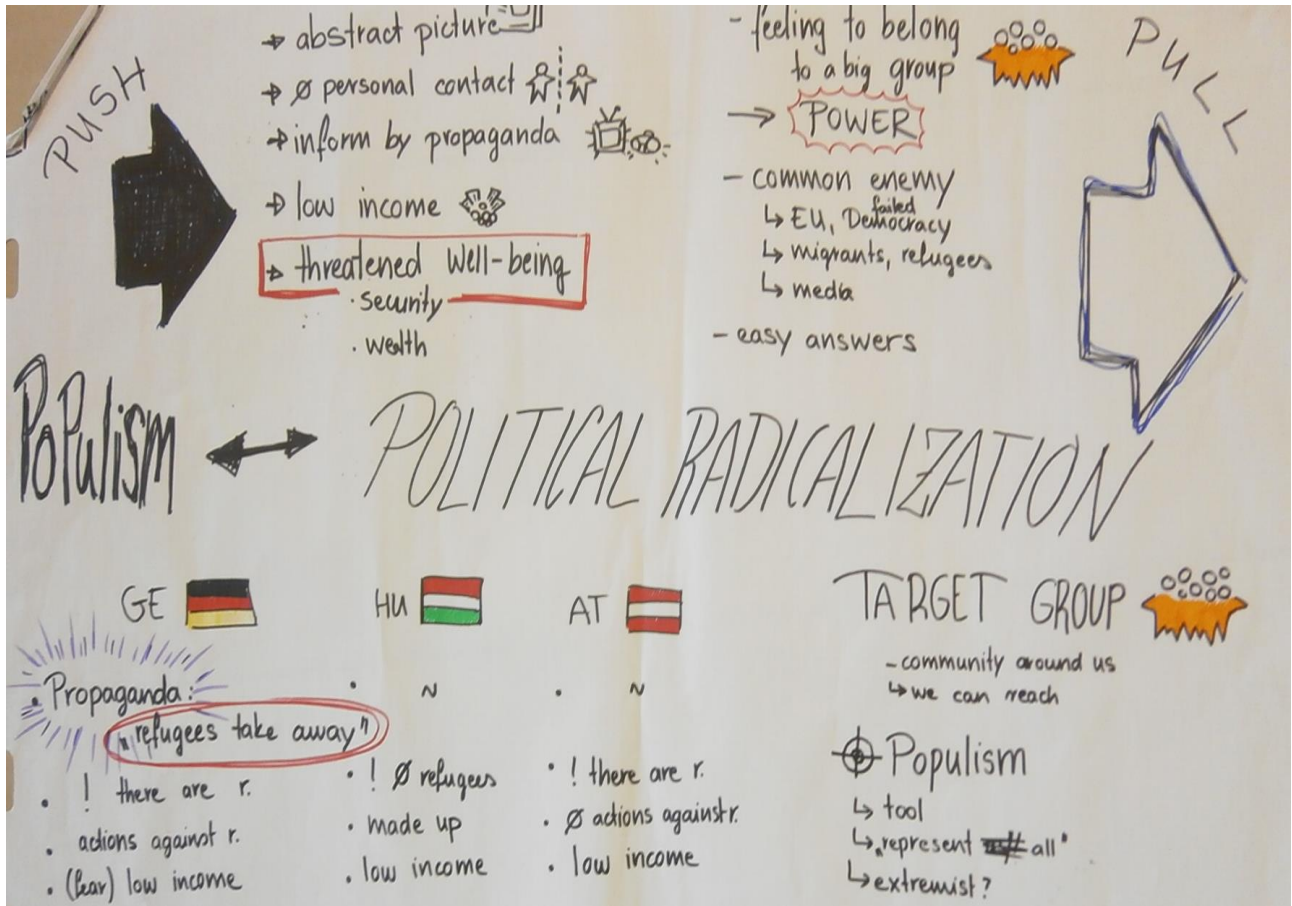 PUSH
→ abstract picture
→ ø personal contact
→ inform by propaganda
→ low income
→ threatened well-being
· security
· wealth
- feeling to belong
to a big group
→ POWER
- common enemy
↳ EU, failed Democracy
↳ migrants, refugees
↳ media
- easy answers
PULL
PoPulism ↔ POLITICAL RADICALIZATION
GE
• Propaganda:
„refugees take away"
• ! there are r.
• actions against r.
• (fear) low income
HU
• ~
• ! Ø refugees
• made up
• low income
AT
• ~
• ! there are r.
• Ø actions against r.
• low income
TARGET GROUP
- community around us
↳ we can reach
Populism
↳ tool
↳ „represent all"
↳ extremist?